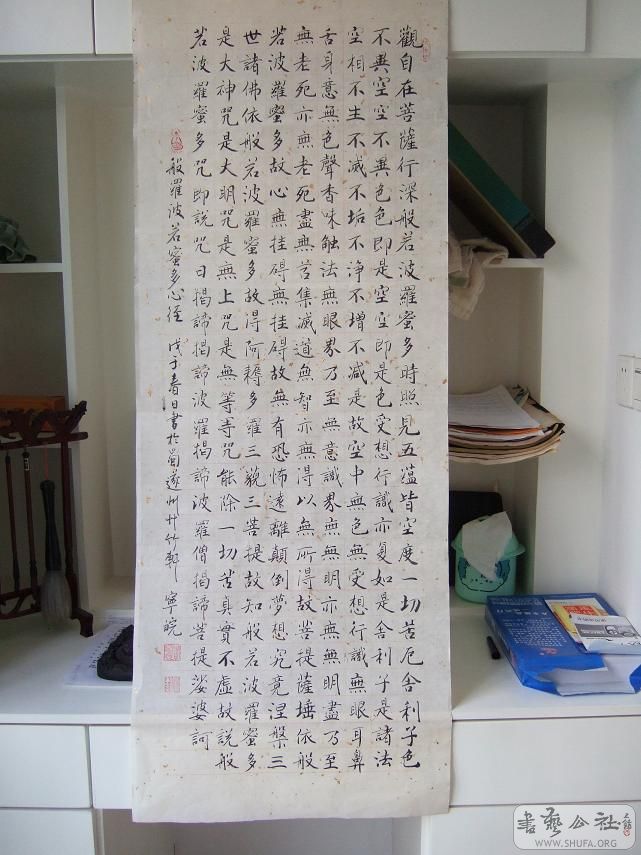 觀自在菩薩行深般若波羅蜜多時照見五蕴皆空度一切苦厄舍利子色
不異空空不異色色即是空空即是色受想行識亦复如是舍利子是諸法
空相不生不滅不垢不净不增不減是故空中無色無受想行識無眼耳鼻
舌身意無色聲香味触法無眼界乃至無意識界無無明亦無無明盡乃至
無老死亦無老死盡無苦集滅道無智亦無得以無所得故菩提薩埵依般
若波羅蜜多故心無挂碍無挂碍故無有恐怖遠離顛倒夢想究竟涅槃三
世諸佛依般若波羅蜜多故得阿耨多羅三藐三菩提故知般若波羅蜜多
是大神咒是大明咒是無上咒是無等等咒能除一切苦真實不虛故說般
若波羅蜜多咒即說咒曰揭諦揭諦波羅揭諦波羅僧揭諦菩提娑婆訶
般羅波若蜜多心径 戊子春日書於蜀遂州竹邨 寧
書藝公社
WWW.SHUFA.ORG